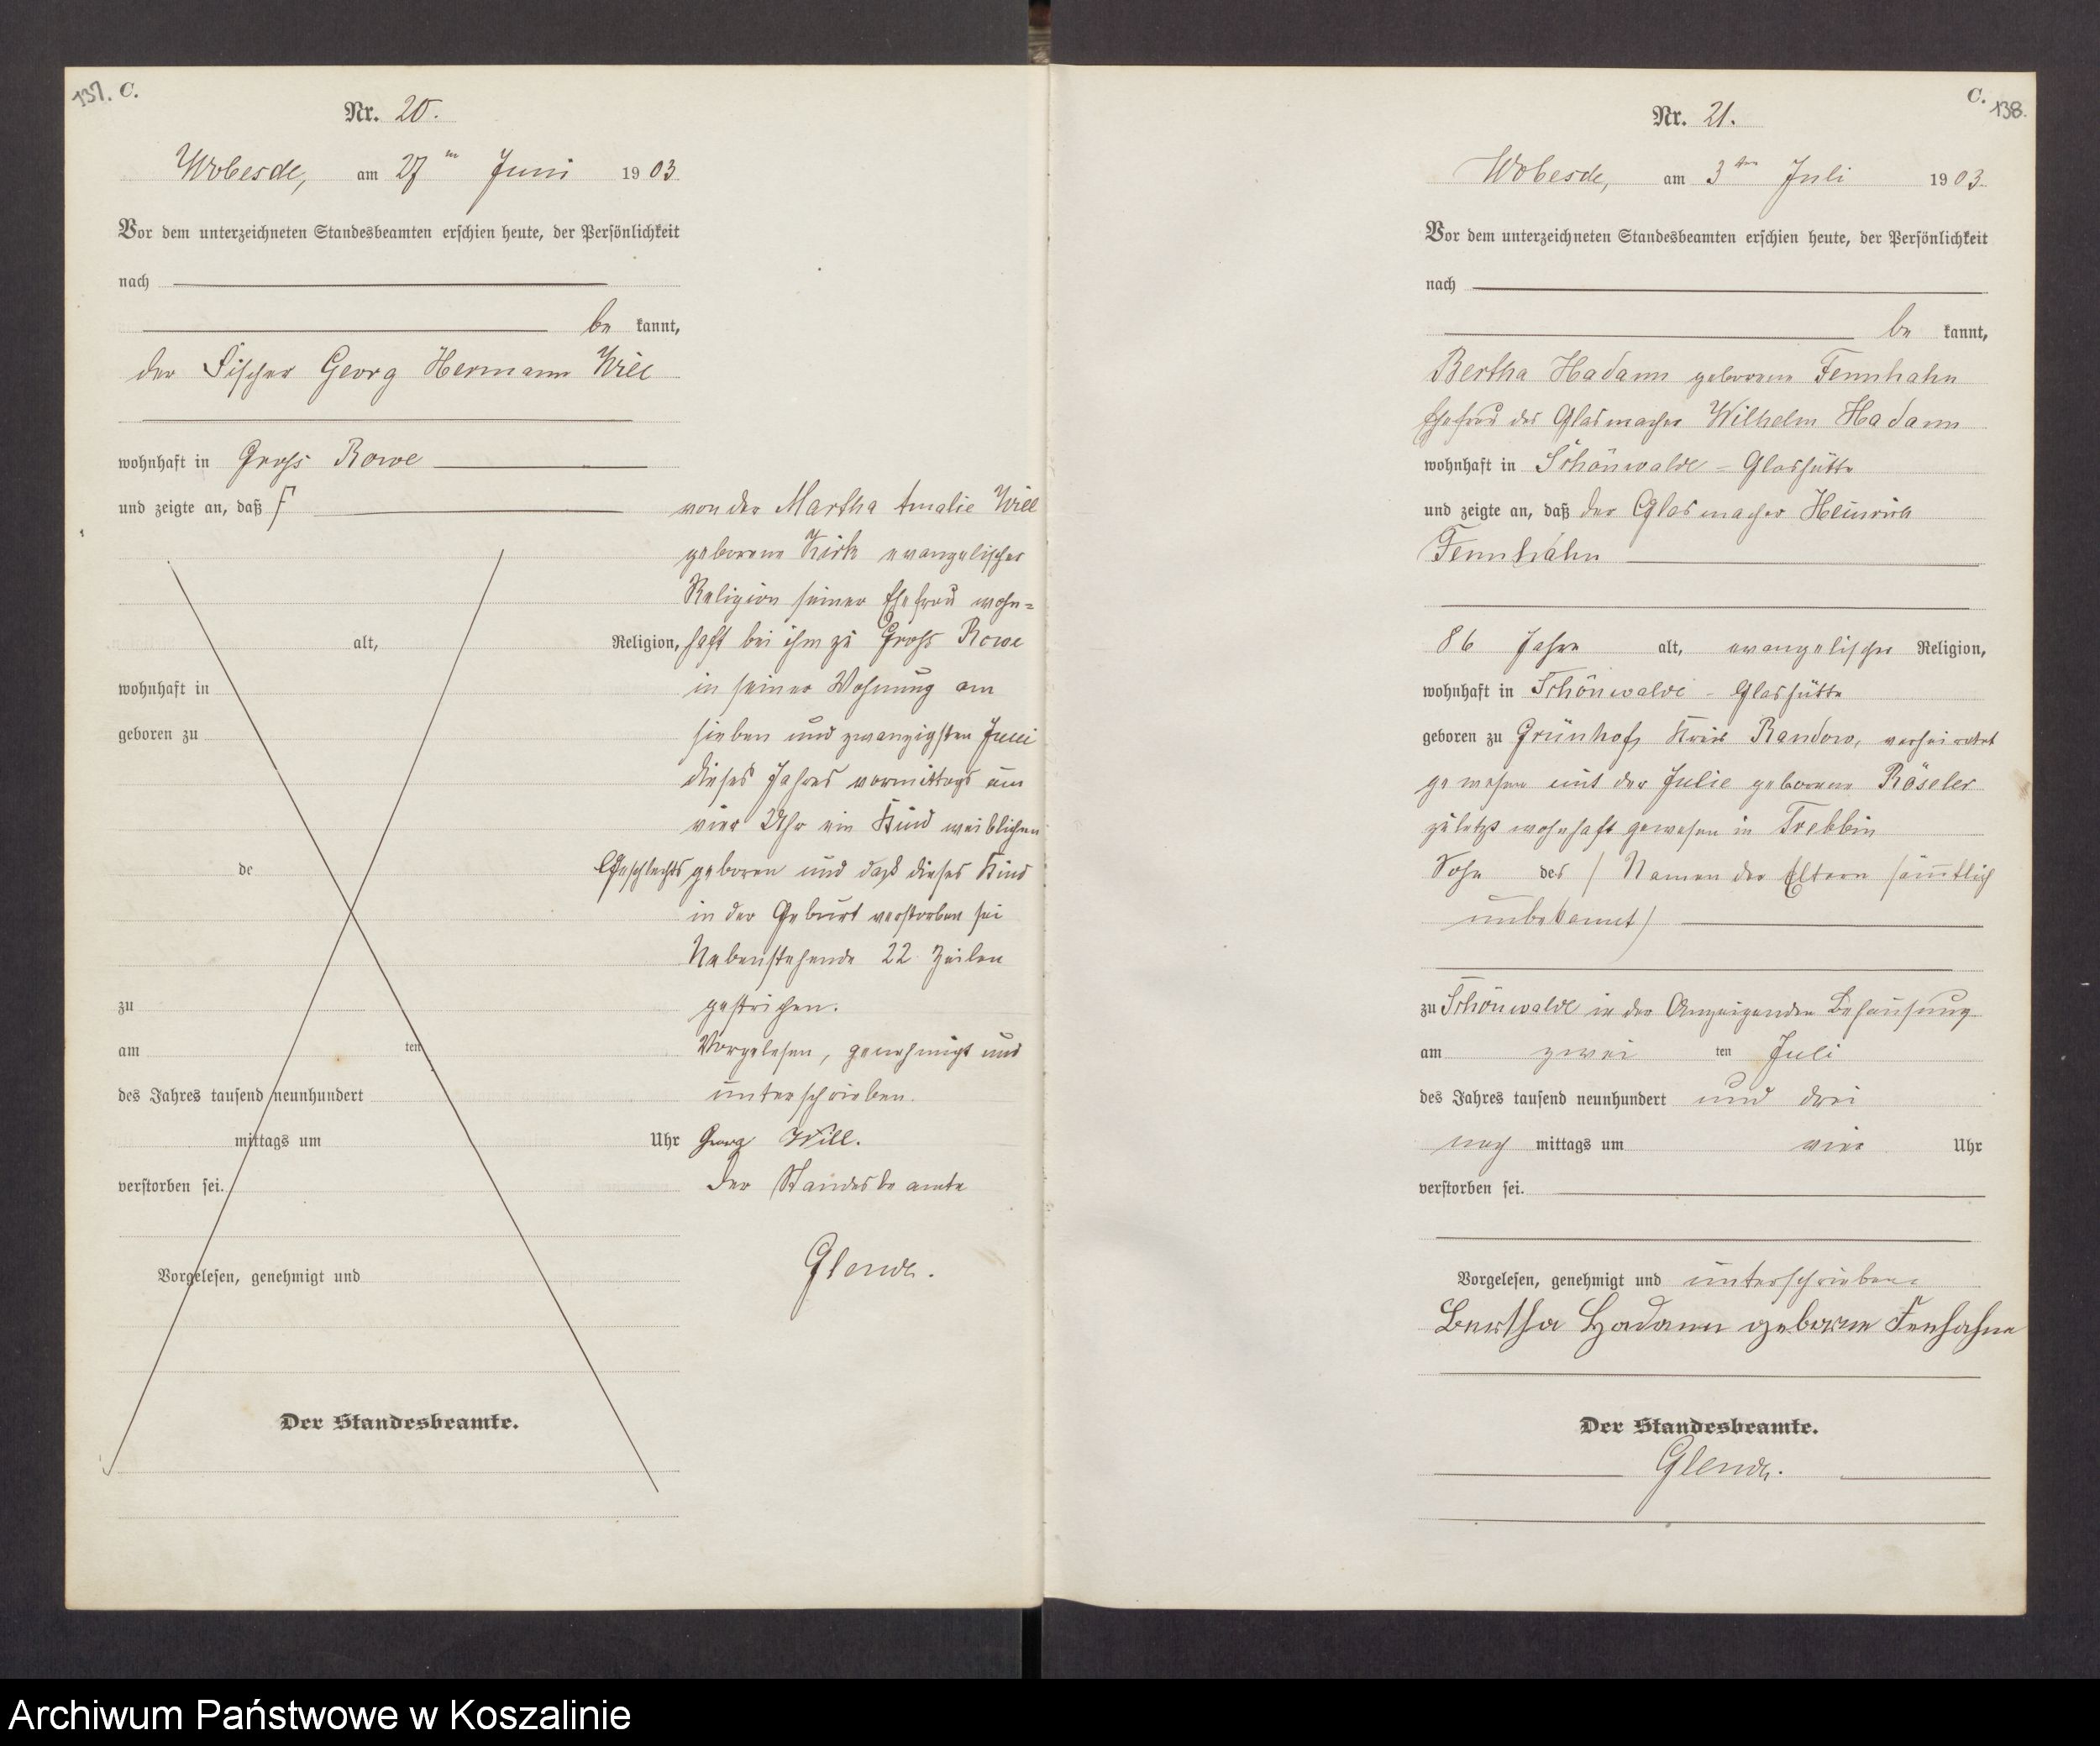 137. C.
Nr. 20.
Wobesde, am 27ten Juni 1903
Vor dem unterzeichneten Standesbeamten erschien heute, der Persönlichkeit
nach
be kannt,
der Fischer Georg Hermann Will
wohnhaft in Gross Rowe
und zeigte an, daß
von der Martha Amalie Will
geborene Kirk evangelischer
Religion seiner Ehefrau wohn=
alt, Religion, haft bei ihm zu Gross Rowe
wohnhaft in in seiner Wohnung am
geboren zu sieben und zwanzigsten Juni
dieses Jahres vormittags um
vier Uhr ein Kind weiblichen
de Geschlechts geboren und daß dieses Kind
in der Geburt verstorben sei
Nebenstehende 22 Zeilen
zu gestrichen.
am ten Vorgelesen, genehmigt und
des Jahres tausend neunhundert unterschrieben.
mittags um Uhr Georg Will.
verstorben sei. Der Standesbeamte
Vorgelesen, genehmigt und Glende.
Der Standesbeamte.
C. 138.
Nr. 21.
Wobesde, am 3ten Juli 1903
Vor dem unterzeichneten Standesbeamten erschien heute, der Persönlichkeit
nach
be kannt,
Bertha Hadann geborene Fennhahn
Ehefrau des Glasmacher Wilhelm Hadann
wohnhaft in Schönwalde - Glashütte
und zeigte an, daß der Glasmacher Heinrich
Fennhahn
86 Jahre alt, evangelischer Religion,
wohnhaft in Schönwalde - Glashütte
geboren zu Grünhof, Kreis Randow, verheiratet
gewesen mit der Julie geborene Röseler
zuletzt wohnhaft gewesen in Trebbin
Sohn des (Namen der Eltern sämmtlich
unbekannt)
zu Schönwalde in der Anzeigenden Behausung
am zwei ten Juli
des Jahres tausend neunhundert und drei
nach mittags um vier Uhr
verstorben sei.
Vorgelesen, genehmigt und unterschrieben
Bertha Hadann geborne Fenhahn
Der Standesbeamte.
Glende.
Archiwum Państwowe w Koszalinie